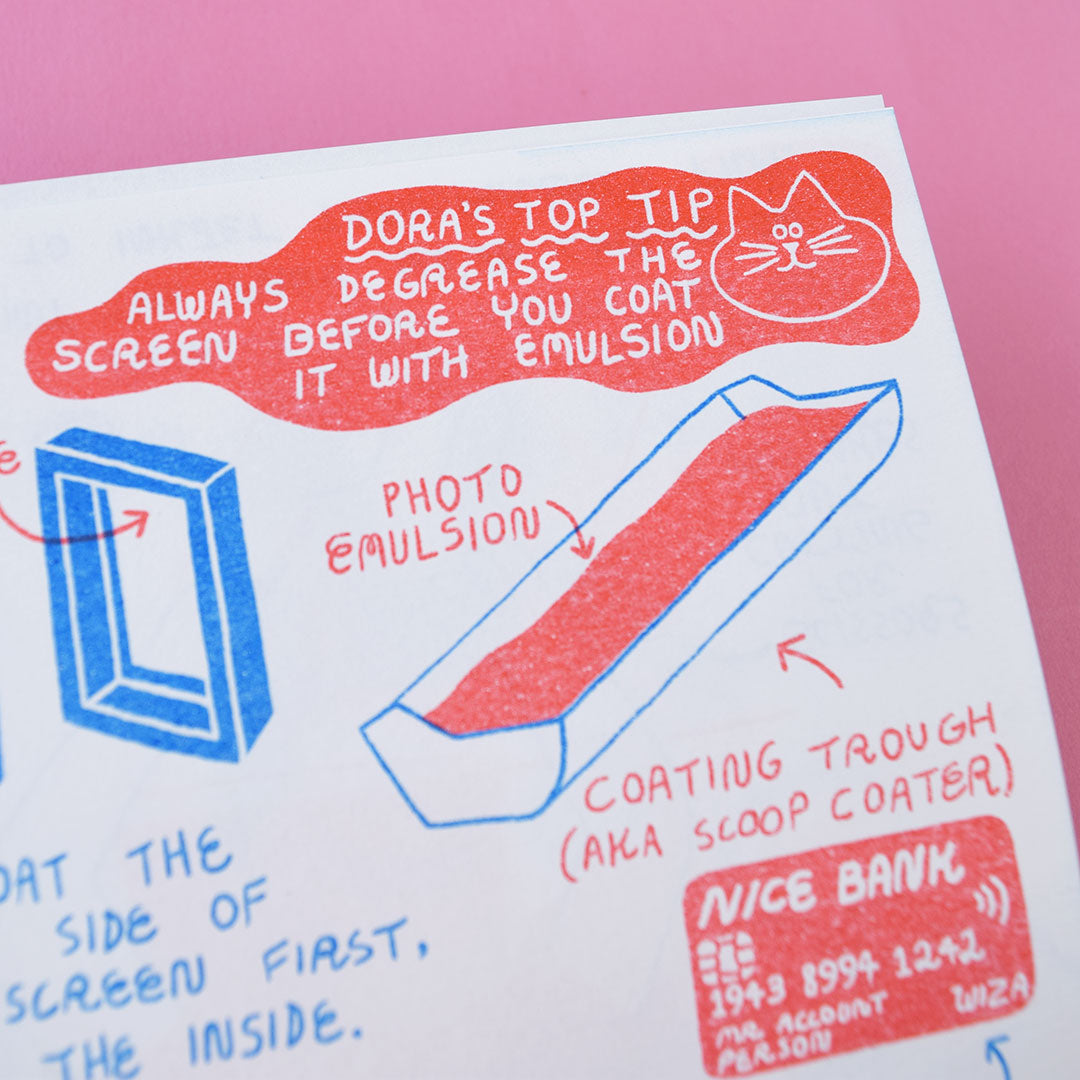 DORA'S TOP TIP
ALWAYS DEGREASE THE
SCREEN BEFORE YOU COAT
IT WITH EMULSION
PHOTO
EMULSION
COATING TROUGH
(AKA SCOOP COATER)
THE
SIDE OF
SCREEN FIRST,
THE INSIDE.
NICE BANK
1943 8994 1242
MR ACCOUNT WIZA
PERSON